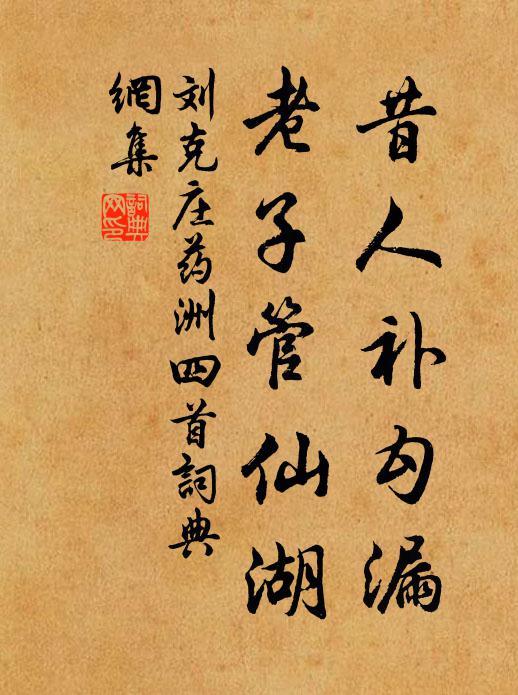 昔人补勾漏
老子管仙湖
刘克庄药洲四首詞典
網集
詞典网印